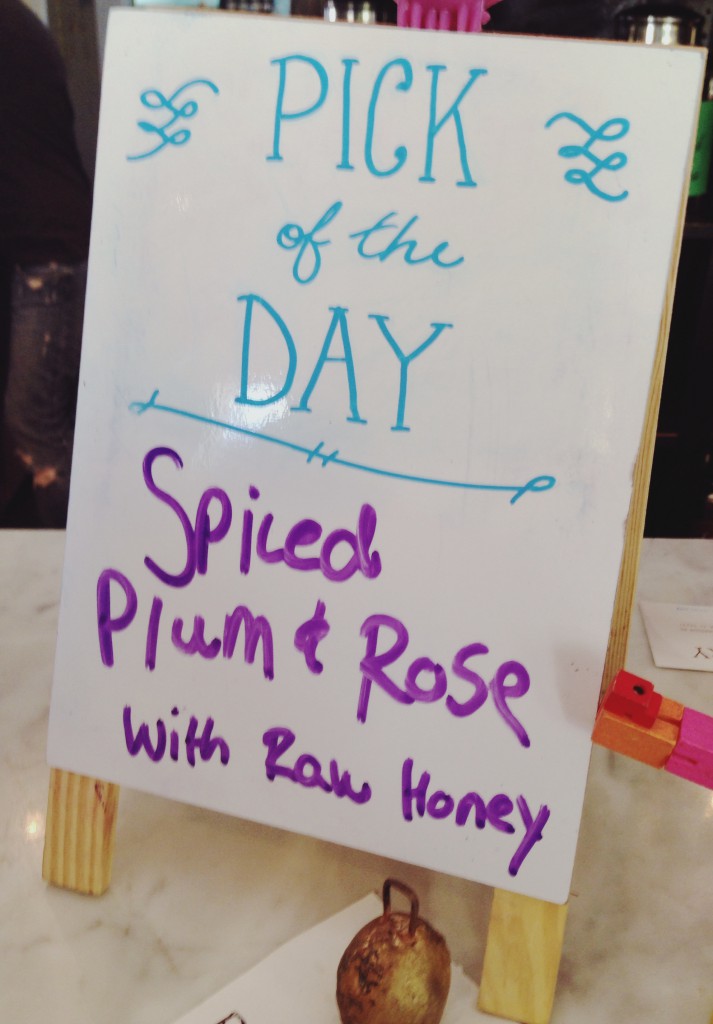 PICK
of the
DAY
Spiced
Plum & Rose
With Raw Honey